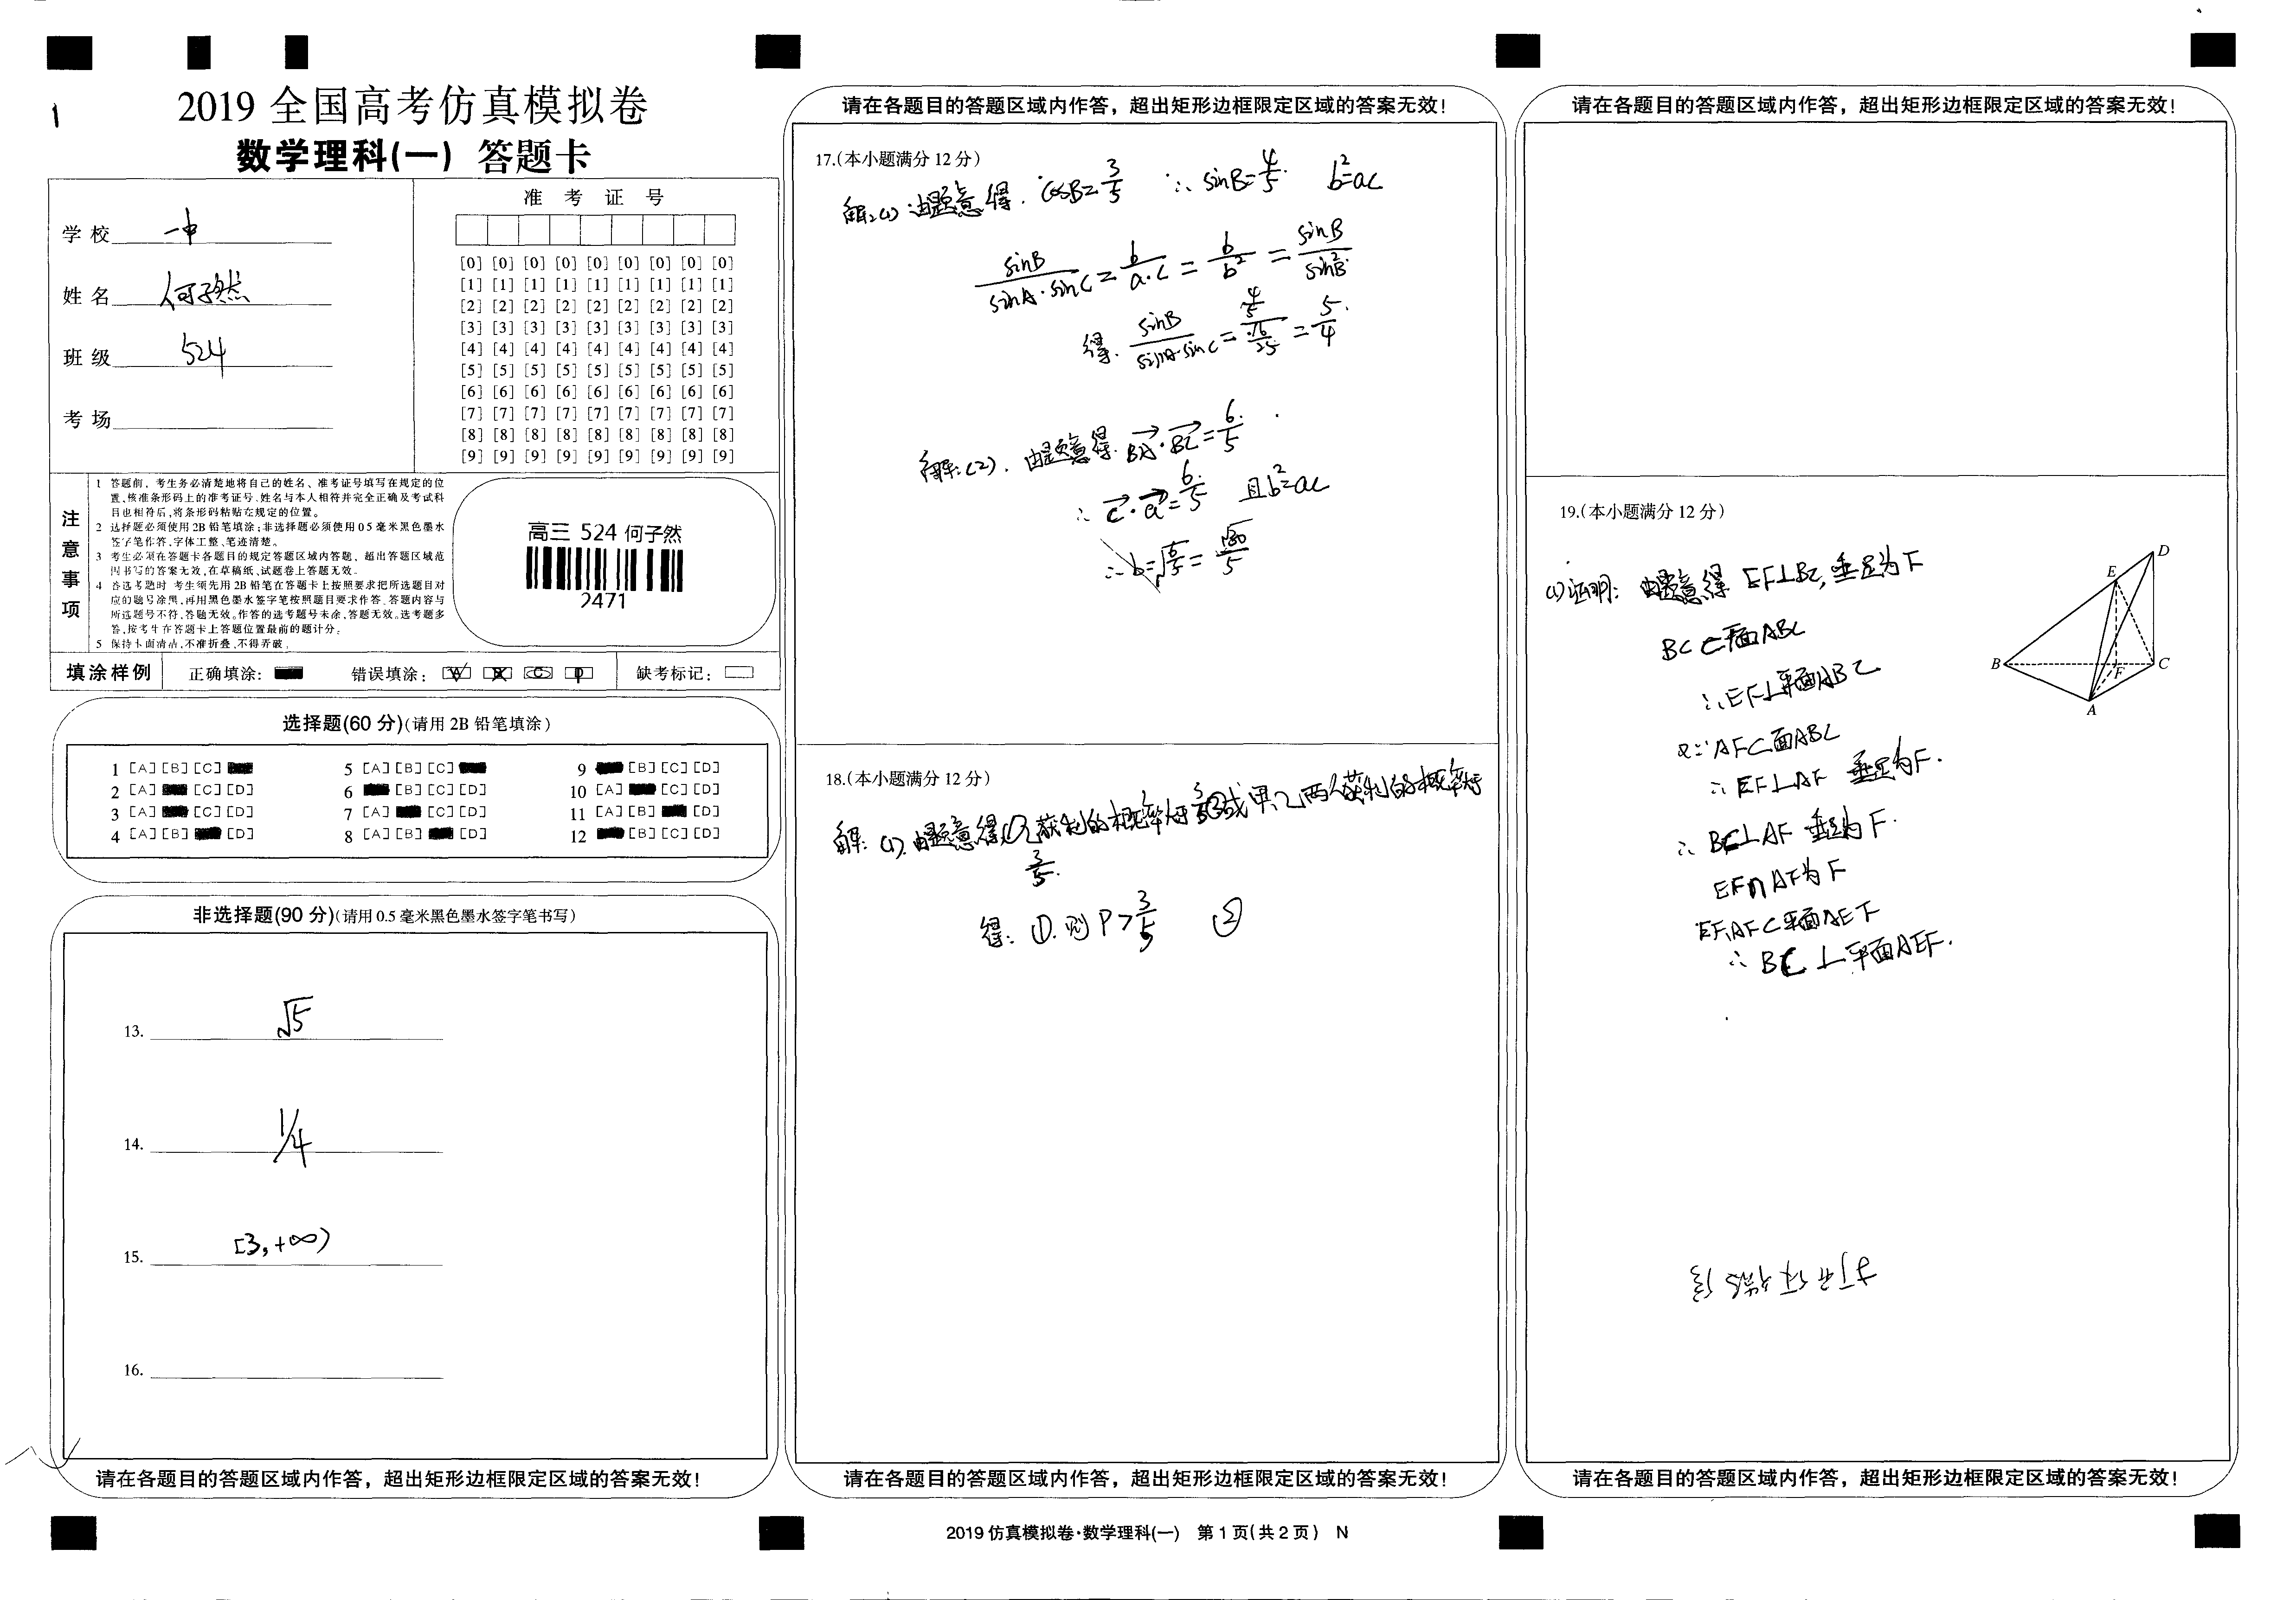 1
2019 全国高考仿真模拟卷
数学理科(一) 答题卡
学校 一中
姓名 何子然
班级 524
考场
准考证号
[0] [0] [0] [0] [0] [0] [0] [0] [0]
[1] [1] [1] [1] [1] [1] [1] [1] [1]
[2] [2] [2] [2] [2] [2] [2] [2] [2]
[3] [3] [3] [3] [3] [3] [3] [3] [3]
[4] [4] [4] [4] [4] [4] [4] [4] [4]
[5] [5] [5] [5] [5] [5] [5] [5] [5]
[6] [6] [6] [6] [6] [6] [6] [6] [6]
[7] [7] [7] [7] [7] [7] [7] [7] [7]
[8] [8] [8] [8] [8] [8] [8] [8] [8]
[9] [9] [9] [9] [9] [9] [9] [9] [9]
注意事项
1 答题前，考生务必清楚地将自己的姓名、准考证号填写在规定的位
置,核准条形码上的准考证号、姓名与本人相符并完全正确及考试科
目也相符后,将条形码粘贴在规定的位置。
2 选择题必须使用2B铅笔填涂;非选择题必须使用05毫米黑色墨水
签字笔作答,字体工整、笔迹清楚。
3 考生必须在答题卡各题目的规定答题区域内答题，超出答题区域范
围书写的答案无效,在草稿纸、试题卷上答题无效。
4 答选考题时 考生须先用2B铅笔在答题卡上按照要求把所选题目对
应的题号涂黑,再用黑色墨水签字笔按照题目要求作答、答题内容与
所选题号不符,答题无效。作答的选考题号未涂,答题无效。选考题多
答,按考生在答题卡上答题位置最前的题计分。
5 保持卡面清洁,不准折叠、不得弄破。
高三 524 何子然
2471
填涂样例 正确填涂： 错误填涂： 缺考标记：
选择题(60分)(请用2B铅笔填涂)
1 [A] [B] [C] 5 [A] [B] [C] 9 [B] [C] [D]
2 [A] [C] [D] 6 [B] [C] [D] 10 [A] [C] [D]
3 [A] [C] [D] 7 [A] [C] [D] 11 [A] [B] [D]
4 [A] [B] [D] 8 [A] [B] [D] 12 [B] [C] [D]
非选择题(90分)(请用0.5毫米黑色墨水签字笔书写)
13. √5
14. 1/4
15. [3,+∞)
16.
请在各题目的答题区域内作答，超出矩形边框限定区域的答案无效！
请在各题目的答题区域内作答，超出矩形边框限定区域的答案无效！
17.(本小题满分12分)
解:(1)由题意得. cosB=3/5 ∴sinB=4/5. b²=ac
sinB/(sinA·sinC)=b/(a·c)=b/b²=sinB/sin²B
得. sinB/(sinA·sinC)=(4/5)/(16/25)=5/4.
解:(2). 由题意得. BA→·BC→=6/5.
∴ c→·a→=6/5 且b²=ac
∴b=√(6/5)=√30/5
18.(本小题满分12分)
解: (1).由题意得①乙获利的概率大于3/5②或甲、乙两个获利的概率大于
3/5.
得: ①.则P>3/5 ②
请在各题目的答题区域内作答，超出矩形边框限定区域的答案无效！
2019仿真模拟卷·数学理科(一) 第1页(共2页) N
请在各题目的答题区域内作答，超出矩形边框限定区域的答案无效！
19.(本小题满分12分)
(1)证明: 由题意得 EF⊥BC,垂足为F
BC⊂平面ABC
∴EF⊥平面ABC
又∵AF⊂面ABC
∴EF⊥AF 垂足为F.
∴ BC⊥AF 垂足为F.
EF∩AF为F
EF,AF⊂平面AEF
∴ BC⊥平面AEF.
D
E
B
F
C
A
请在各题目的答题区域内作答，超出矩形边框限定区域的答案无效！